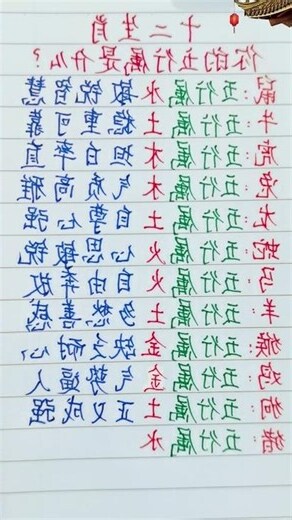 十二生肖
你的五行属是什么?
鼠:五行属水 敏锐智慧
牛:五行属土 稳重可靠
虎:五行属木 坦白率直
兔:五行属木 气质高雅
龙:五行属土 自尊心强
蛇:五行属火 心思敏锐
马:五行属火 自由奔放
羊:五行属土 多愁善感
猴:五行属金 缺乏耐心
鸡:五行属金 气势逼人
狗:五行属土 正又成强
猪:五行属水